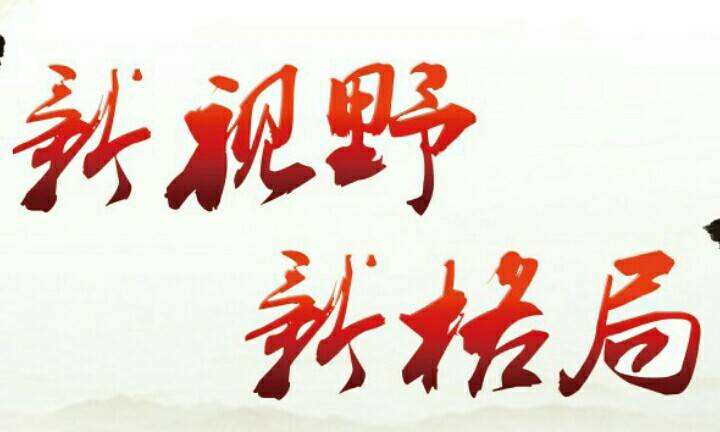 新视野
新格局